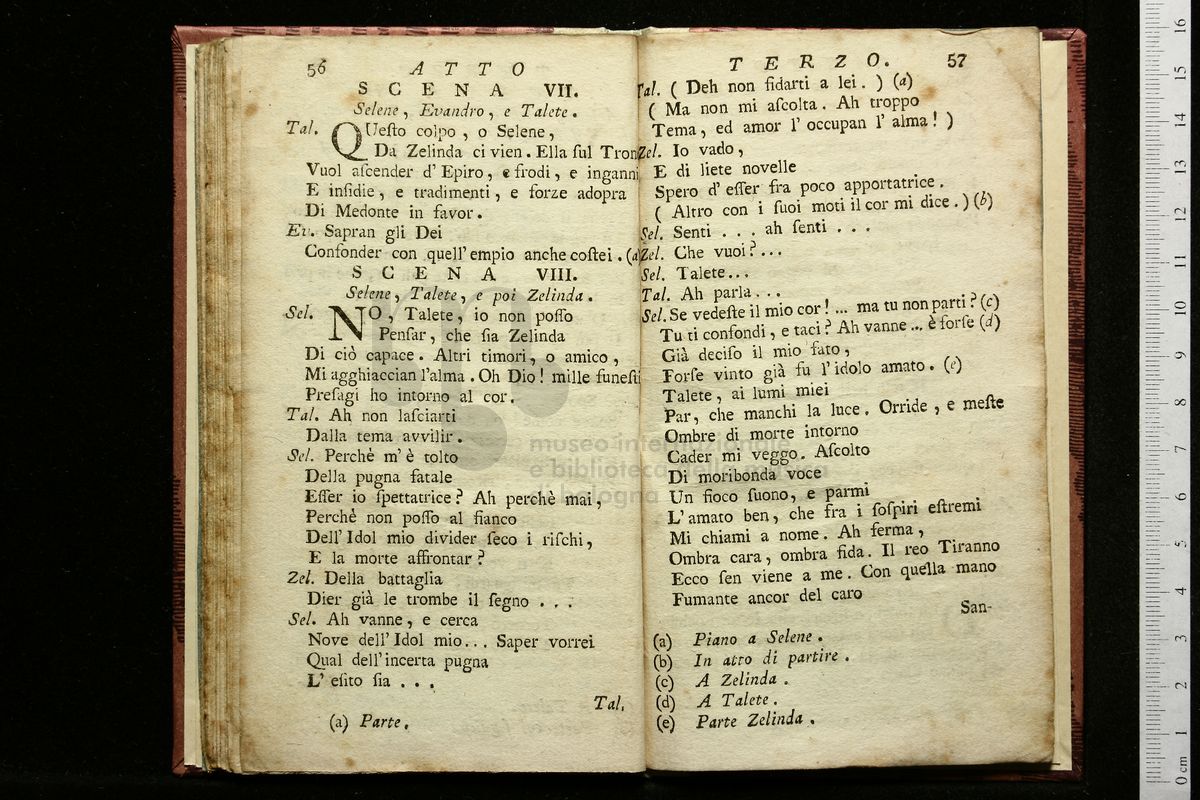 56 ATTO
SCENA VII.
Selene, Evandro, e Talete.
Tal. QUeſto colpo, o Selene,
Da Zelinda ci vien. Ella ſul Tron
Vuol aſcender d' Epiro, e frodi, e inganni
E inſidie, e tradimenti, e forze adopra
Di Medonte in favor.
Ev. Sapran gli Dei
Confonder con quell' empio anche coſtei. (a)
SCENA VIII.
Selene, Talete, e poi Zelinda.
Sel. NO, Talete, io non poſſo
Penſar, che ſia Zelinda
Di ciò capace. Altri timori, o amico,
Mi agghiaccian l'alma. Oh Dio! mille funeſti
Preſagi ho intorno al cor.
Tal. Ah non laſciarti
Dalla tema avvilir.
Sel. Perchè m' è tolto
Della pugna fatale
Eſſer io ſpettatrice? Ah perchè mai,
Perchè non poſſo al fianco
Dell' Idol mio divider ſeco i riſchi,
E la morte affrontar?
Zel. Della battaglia
Dier già le trombe il ſegno . . .
Sel. Ah vanne, e cerca
Nove dell' Idol mio... Saper vorrei
Qual dell'incerta pugna
L' eſito ſia . . .
Tal.
(a) Parte.
TERZO. 57
Tal. ( Deh non fidarti a lei. ) (a)
( Ma non mi aſcolta. Ah troppo
Tema, ed amor l' occupan l' alma! )
Zel. Io vado,
E di liete novelle
Spero d' eſſer fra poco apportatrice.
( Altro con i ſuoi moti il cor mi dice. ) (b)
Sel. Senti . . . ah ſenti . . .
Zel. Che vuoi?...
Sel. Talete...
Tal. Ah parla...
Sel. Se vedeſte il mio cor! ... ma tu non parti? (c)
Tu ti confondi, e taci? Ah vanne ... è forſe (d)
Già deciſo il mio fato,
Forſe vinto già fu l'idolo amato. (e)
Talete, ai lumi miei
Par, che manchi la luce. Orride, e meſte
Ombre di morte intorno
Cader mi veggo. Aſcolto
Di moribonda voce
Un fioco ſuono, e parmi
L'amato ben, che fra i ſoſpiri eſtremi
Mi chiami a nome. Ah ferma,
Ombra cara, ombra fida. Il reo Tiranno
Ecco ſen viene a me. Con queſta mano
Fumante ancor del caro
San-
(a) Piano a Selene.
(b) In atto di partire.
(c) A Zelinda.
(d) A Talete.
(e) Parte Zelinda.
museo internazionale
e biblioteca della musica
di bologna
0 cm 1 2 3 4 5 6 7 8 9 10 11 12 13 14 15 16